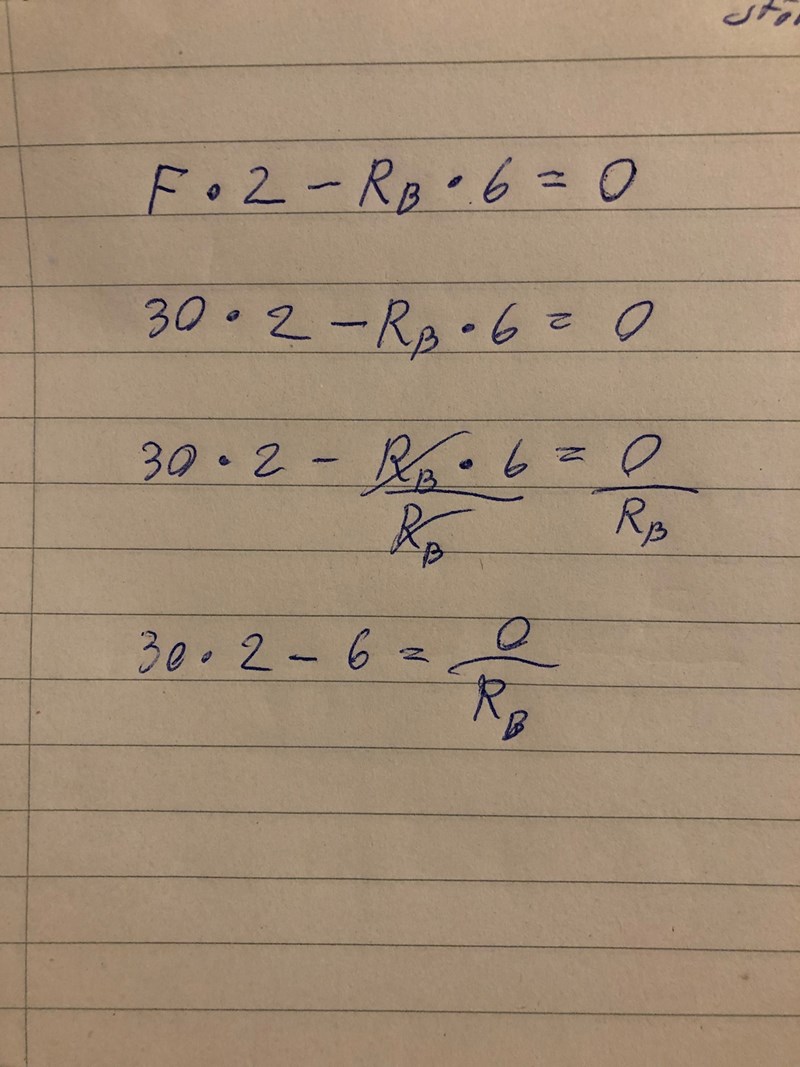 F · 2 - R_B · 6 = 0
30 · 2 - R_B · 6 = 0
30 · 2 - R_B · 6 / R_B = 0 / R_B
30 · 2 - 6 = 0 / R_B